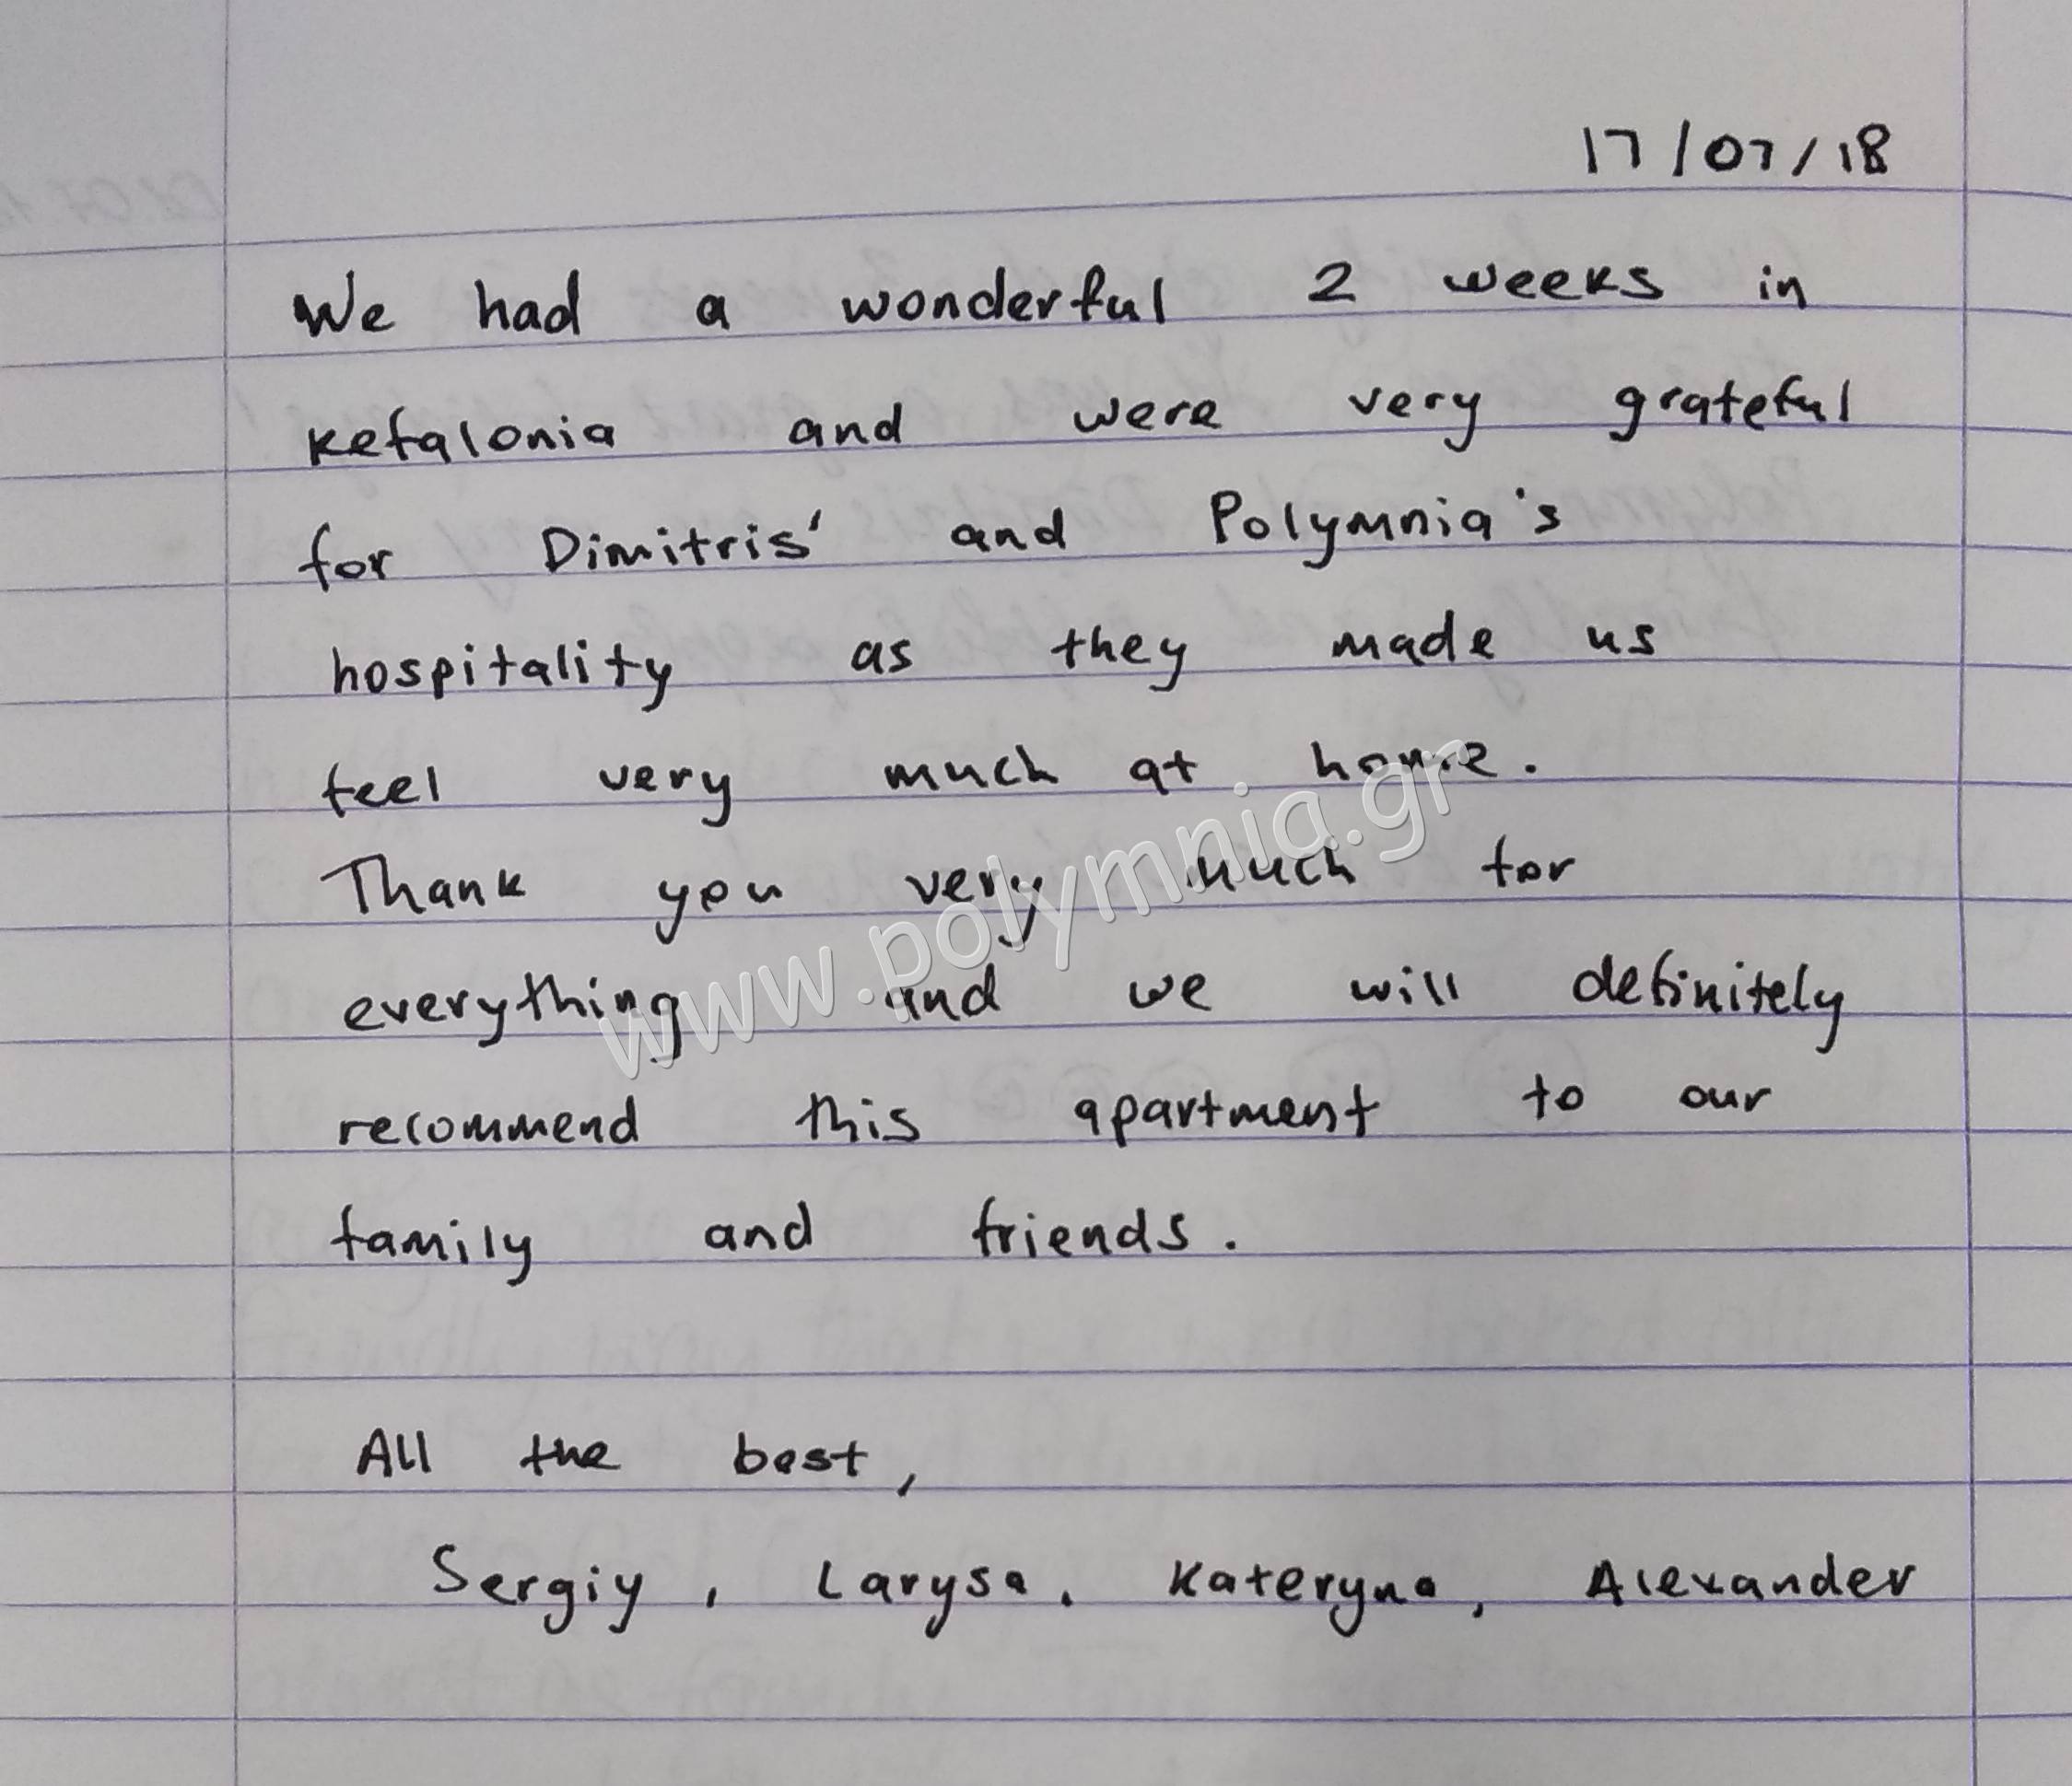 17/07/18
We had a wonderful 2 weeks in
Kefalonia and were very grateful
for Dimitris' and Polymnia's
hospitality as they made us
feel very much at home.
Thank you very much for
everything and we will definitely
recommend this apartment to our
family and friends.
All the best,
Sergiy, Larysa, Kateryna, Alexander
www.polymnia.gr